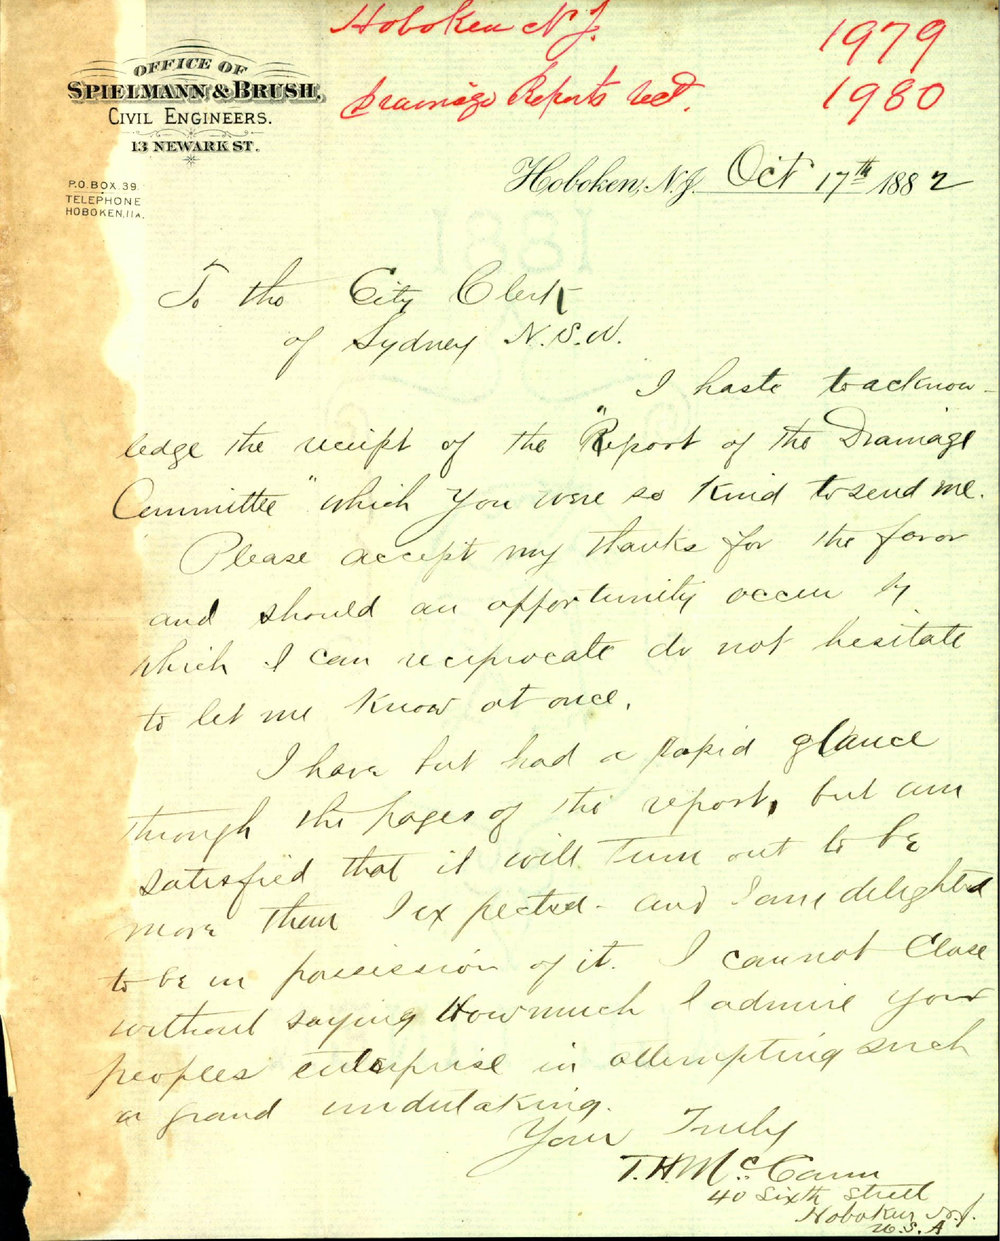 Hoboken N.J.
1979
Drainage Reports recd.
1980
OFFICE OF
SPIELMANN & BRUSH,
CIVIL ENGINEERS.
13 NEWARK ST.
P.O. BOX 39.
TELEPHONE
HOBOKEN, 11A.
Hoboken, N.J. Oct 17th 1882
To the City Clerk
of Sydney N.S.W.
I haste to acknow-
ledge the receipt of the "Report of the Drainage
Committee" which you were so kind to send me.
Please accept my thanks for the favor
and should an opportunity occur by
which I can reciprocate do not hesitate
to let me know at once.
I have but had a rapid glance
through the pages of the report, but am
satisfied that it will turn out to be
more than I expected - and I am delighted
to be in possession of it. I cannot close
without saying How much I admire your
peoples enterprise in attempting such
a grand undertaking.
Your Truly
T.H. McCann
40 Sixth Street
Hoboken N.J.
U.S.A
1881